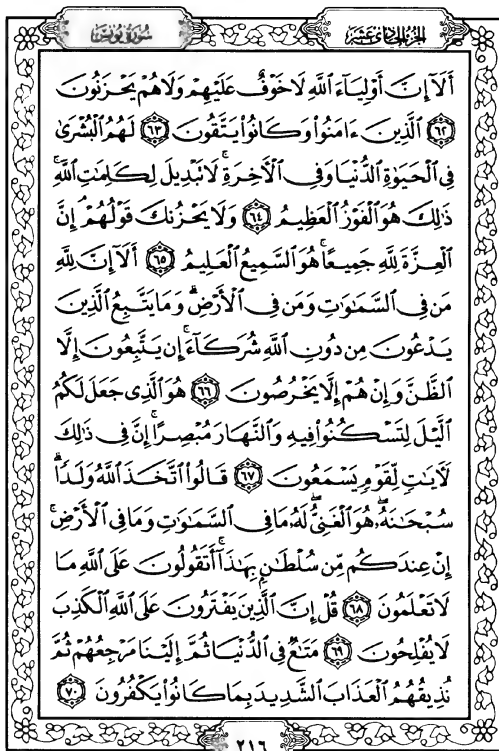 سُورَةُ يُونُسَ
الجُزءُ الحَادِي عَشَرَ
أَلَآ إِنَّ أَوْلِيَآءَ ٱللَّهِ لَا خَوْفٌ عَلَيْهِمْ وَلَا هُمْ يَحْزَنُونَ
﴿٦٢﴾ ٱلَّذِينَ ءَامَنُوا۟ وَكَانُوا۟ يَتَّقُونَ ﴿٦٣﴾ لَهُمُ ٱلْبُشْرَىٰ
فِى ٱلْحَيَوٰةِ ٱلدُّنْيَا وَفِى ٱلْأَخِرَةِ ۚ لَا تَبْدِيلَ لِكَلِمَٰتِ ٱللَّهِ ۚ
ذَٰلِكَ هُوَ ٱلْفَوْزُ ٱلْعَظِيمُ ﴿٦٤﴾ وَلَا يَحْزُنكَ قَوْلُهُمْ ۘ إِنَّ
ٱلْعِزَّةَ لِلَّهِ جَمِيعًا ۚ هُوَ ٱلسَّمِيعُ ٱلْعَلِيمُ ﴿٦٥﴾ أَلَآ إِنَّ لِلَّهِ
مَن فِى ٱلسَّمَٰوَٰتِ وَمَن فِى ٱلْأَرْضِ ۗ وَمَا يَتَّبِعُ ٱلَّذِينَ
يَدْعُونَ مِن دُونِ ٱللَّهِ شُرَكَآءَ ۚ إِن يَتَّبِعُونَ إِلَّا
ٱلظَّنَّ وَإِنْ هُمْ إِلَّا يَخْرُصُونَ ﴿٦٦﴾ هُوَ ٱلَّذِى جَعَلَ لَكُمُ
ٱلَّيْلَ لِتَسْكُنُوا۟ فِيهِ وَٱلنَّهَارَ مُبْصِرًا ۚ إِنَّ فِى ذَٰلِكَ
لَءَايَٰتٍ لِّقَوْمٍ يَسْمَعُونَ ﴿٦٧﴾ قَالُوا۟ ٱتَّخَذَ ٱللَّهُ وَلَدًا ۗ
سُبْحَٰنَهُۥ ۖ هُوَ ٱلْغَنِىُّ ۖ لَهُۥ مَا فِى ٱلسَّمَٰوَٰتِ وَمَا فِى ٱلْأَرْضِ ۚ
إِنْ عِندَكُم مِّن سُلْطَٰنٍۭ بِهَٰذَآ ۚ أَتَقُولُونَ عَلَى ٱللَّهِ مَا
لَا تَعْلَمُونَ ﴿٦٨﴾ قُلْ إِنَّ ٱلَّذِينَ يَفْتَرُونَ عَلَى ٱللَّهِ ٱلْكَذِبَ
لَا يُفْلِحُونَ ﴿٦٩﴾ مَتَٰعٌ فِى ٱلدُّنْيَا ثُمَّ إِلَيْنَا مَرْجِعُهُمْ ثُمَّ
نُذِيقُهُمُ ٱلْعَذَابَ ٱلشَّدِيدَ بِمَا كَانُوا۟ يَكْفُرُونَ ﴿٧٠﴾
٢١٦